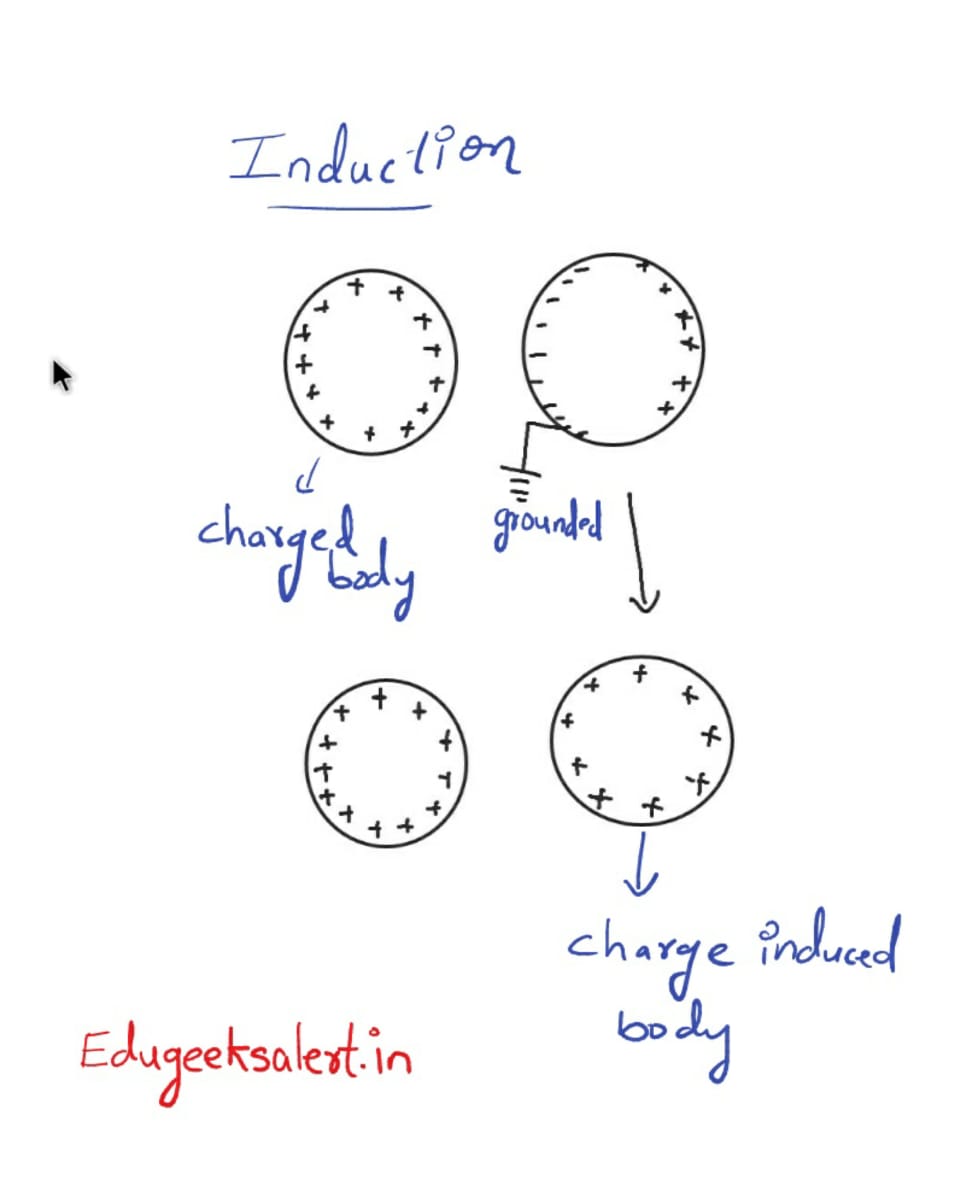 Induction
charged
body
grounded
charge induced
body
Edugeeksalert.in